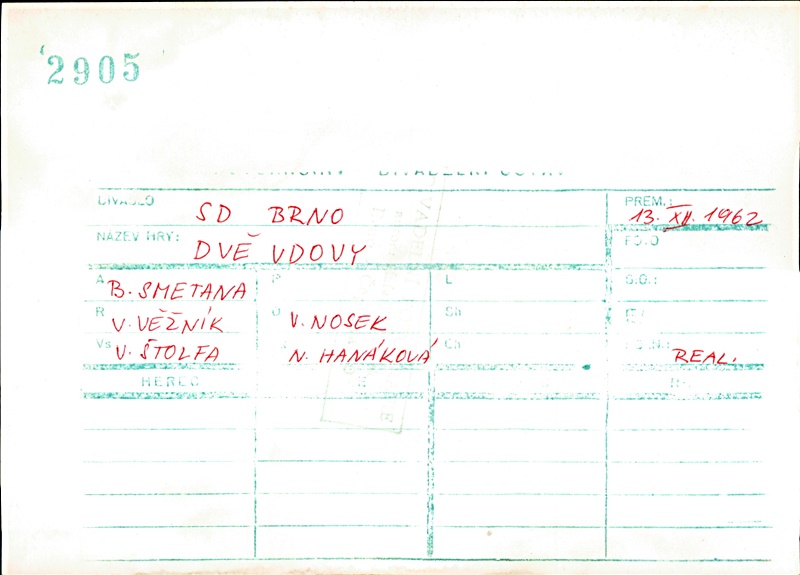 2905
DIVADLO SD BRNO PREM.: 13. XII. 1962
NÁZEV HRY: DVĚ VDOVY
A B. SMETANA P L S.O.:
R V. VĚŽNÍK V. NOSEK Sh
Vs V. ŠTOLFA N. HANÁKOVÁ Ch REAL.
HEREC